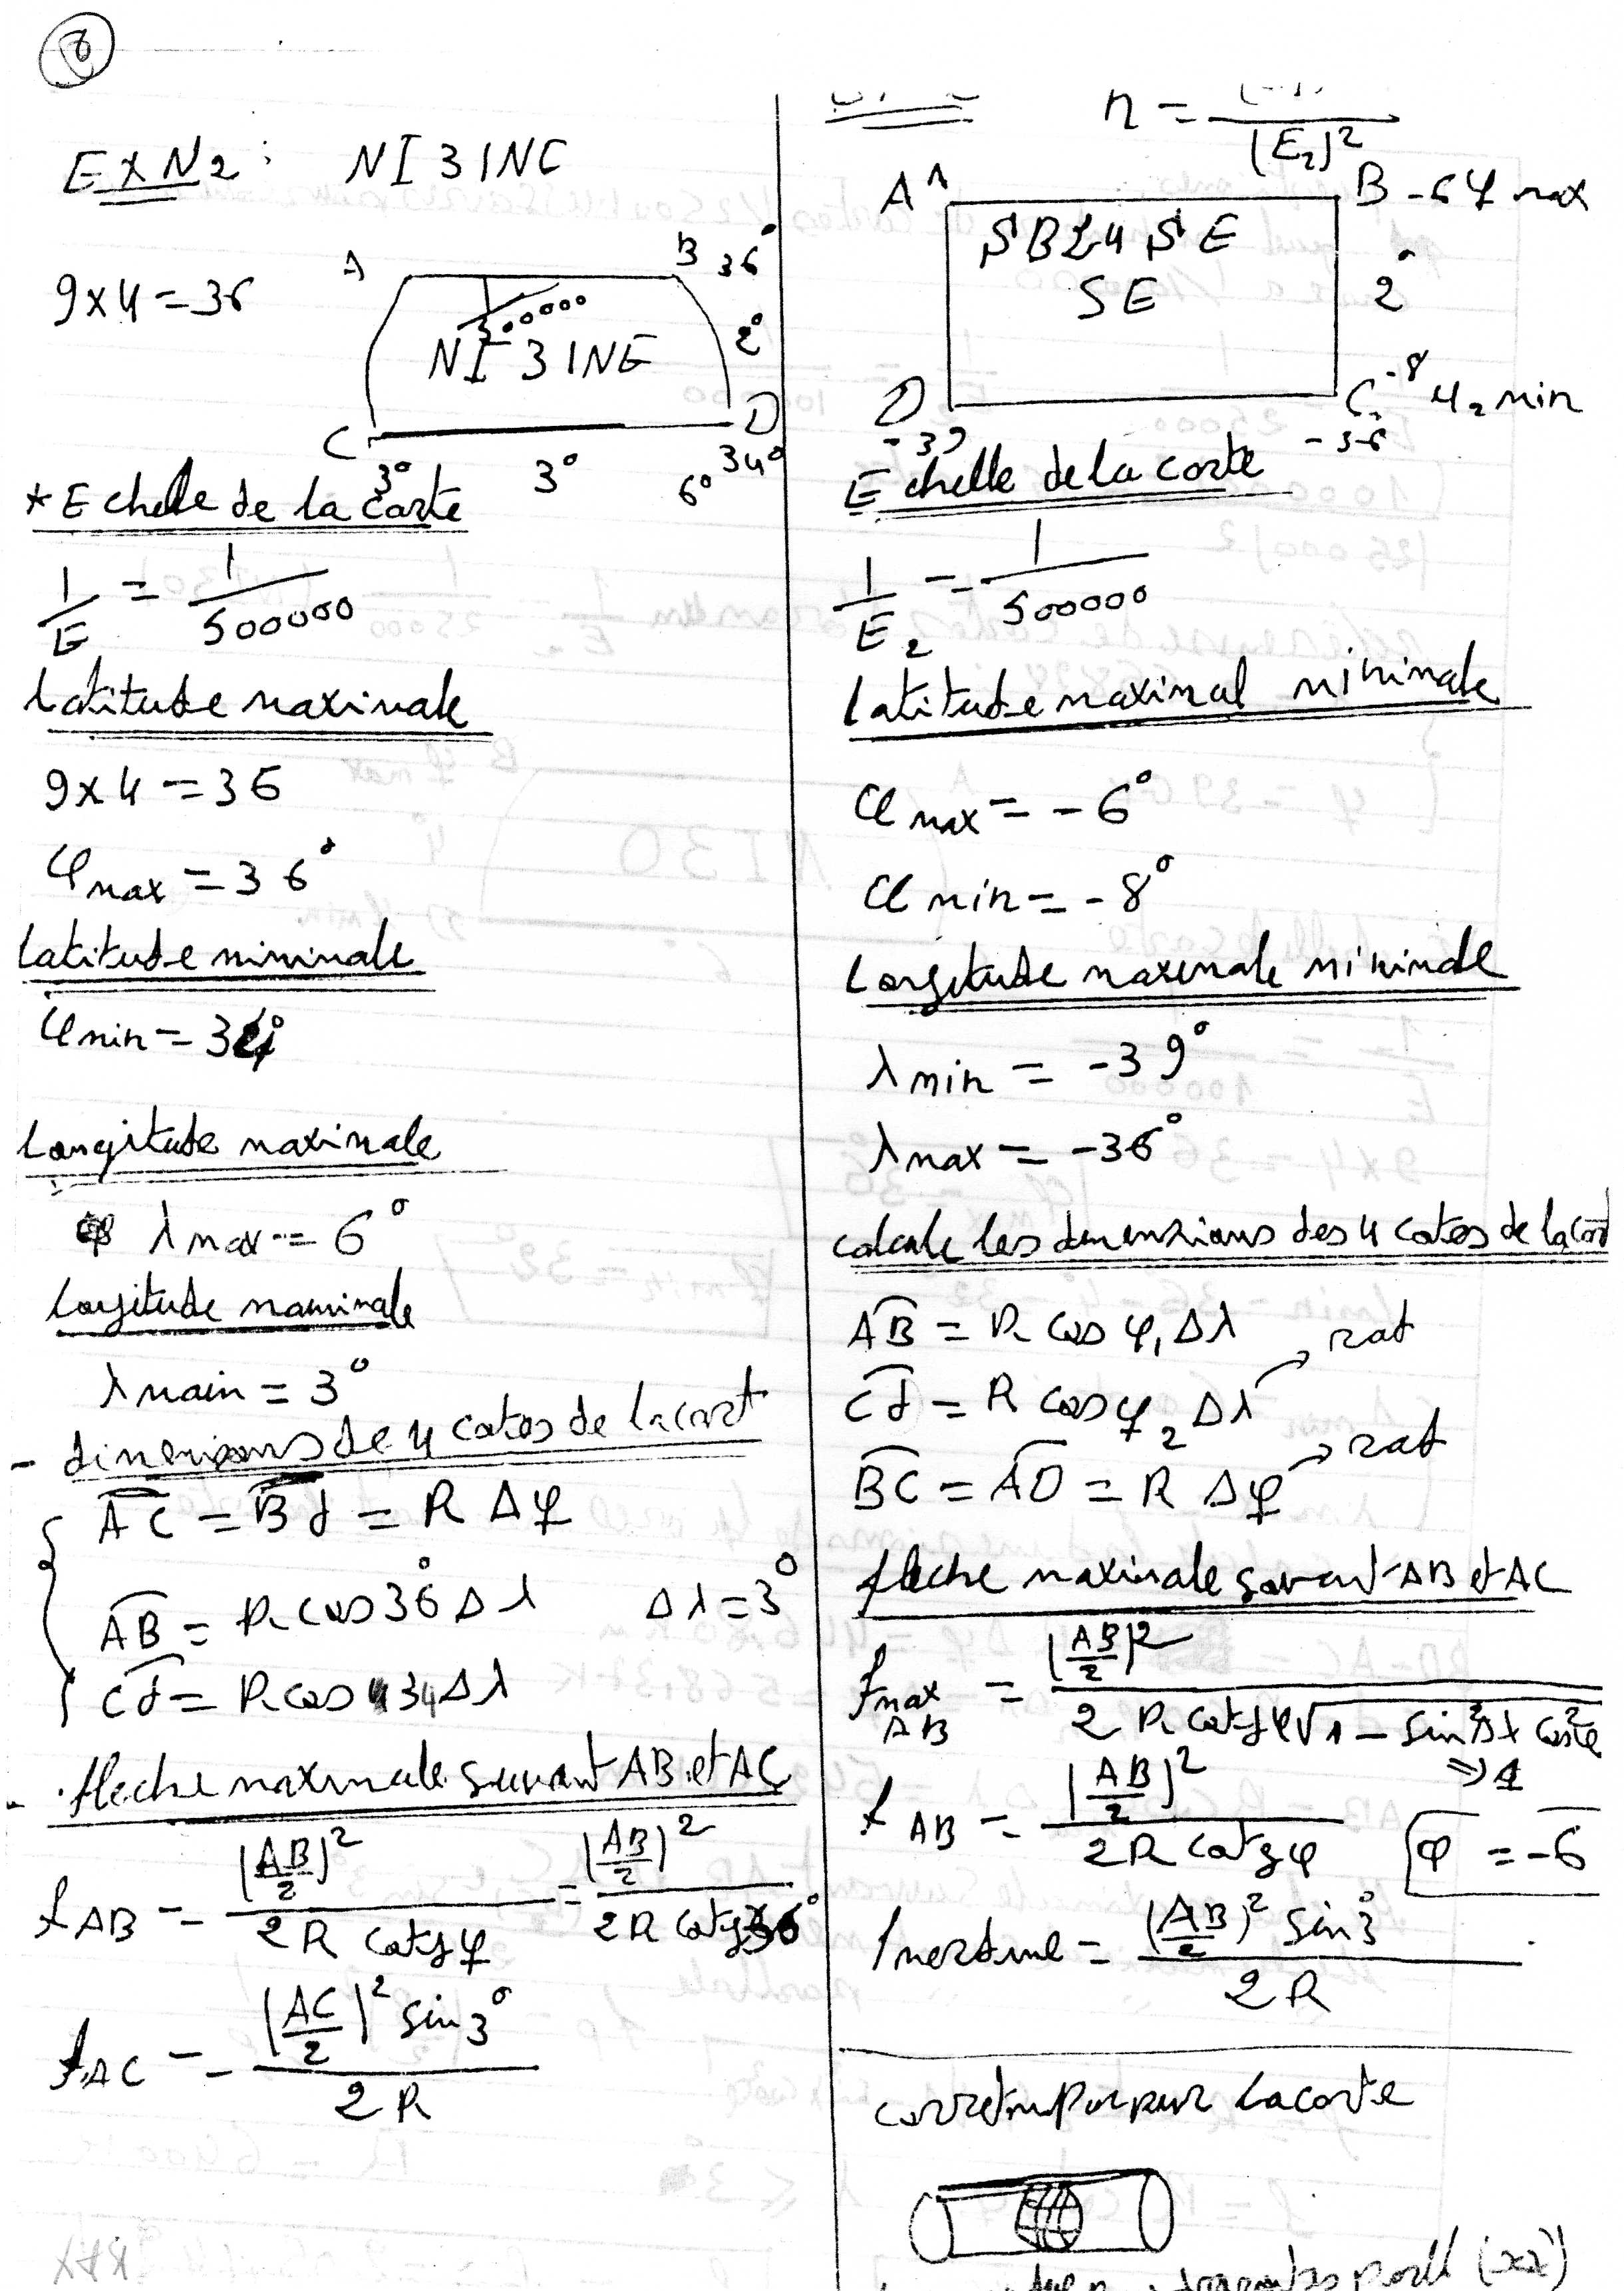 8
EXN2: NI 31NE
9x4=36
A B 36°
1/500000
NI 31NE 2°
C D
3° 3° 6° 34°
* Echelle de la carte
1/E = 1/500000
latitude maximale
9x4=36
φmax = 36°
latitude minimale
φmin = 34°
Longitude maximale
λmax = 6°
Longitude naminale
λmain = 3°
- dimensions de 4 cotes de la cart
AC = Bd = R Δφ
AB = R cos 36° Δλ Δλ=3°
Cd = R cos 34 Δλ
- fleche maximale suivant AB et AC
fAB = (AB/2)² / 2R cotgφ = (AB/2)² / 2R cotg36°
fAC = (AC/2)² sin 3° / 2R
n = / (E2)²
A B -6 φ max
SB24 SE
SE 2°
D C -8° φ2 min
-39 -36
Echelle de la carte
1/E2 = 1/500000
latitude maximal minimale
φmax = -6°
φmin = -8°
Longitude maximale minimale
λmin = -39°
λmax = -36°
calcule les dimensions des 4 cotes de la cart
AB = R cos φ1 Δλ
Cd = R cos φ2 Δλ → rad
BC = AD = R Δφ → rad
fleche maximale suivant AB et AC
fmax AB = (AB/2)² / 2R cotgφ √1 - sin²Δλ cos²φ
⇒ 1
fAB = (AB/2)² / 2R cotgφ φ = -6
= (AB/2)² sin 3° / 2R